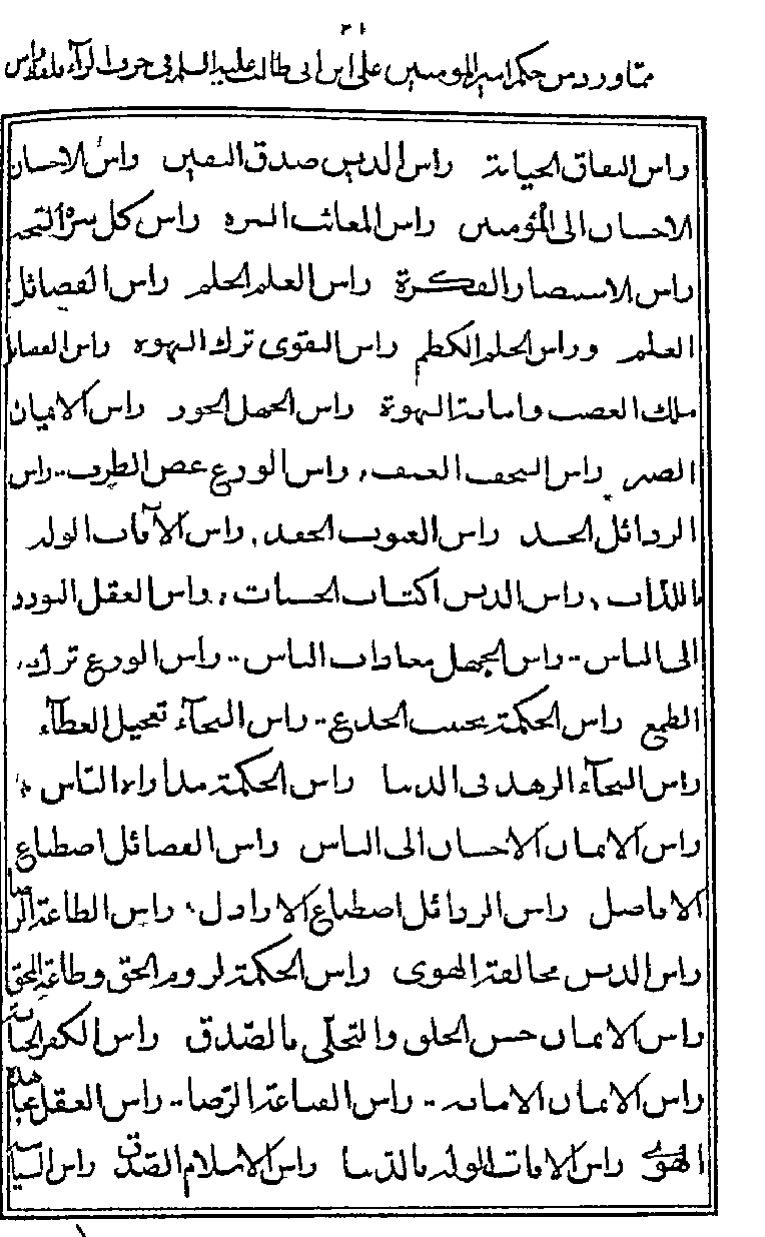 ٣١
مما ورد من حكم امير المومنين على ابن ابى طالب عليه السلم فى حرف الرآء بلفظ راس
راس النفاق الخيانة راس الدين صدق اليقين راس الاحسان
الاحسان الى المؤمنين راس المعائب الشره راس كل شر القحه
راس الاستبصار الفكرة راس العلم الحلم راس الفضائل
العلم وراس الحلم الكظم راس التقوى ترك الشهوه راس الفضائل
ملك الغضب واماتة الشهوة راس الجهل الجور راس الايمان
الصبر راس السخف العنف راس الورع غض الطرف راس
الرذائل الحسد راس العيوب الحقد راس الآفات الوله
باللذات راس الدين اكتساب الحسنات راس العقل التودد
الى الناس راس الجهل معادات الناس راس الورع ترك
الطمع راس الحكمة تجنب الخدع راس السخآء تعجيل العطآء
راس السخآء الزهد فى الدنيا راس الحكمة مداراه النّاس
راس الايمان الاحسان الى الناس راس الفضائل اصطناع
الافاضل راس الرذائل اصطناع الاراذل راس الطاعة الرضا
راس الدين مخالفة الهوى راس الحكمة لزوم الحق وطاعة المحق
راس الايمان حسن الخلق والتحلّى بالصّدق راس الكفر الخيانة
راس الايمان الامانه راس القناعة الرّضا راس العقل مجاهدة
الهوى راس الافات الوله بالدّنيا راس الاسلام الصّدق راس السياسة